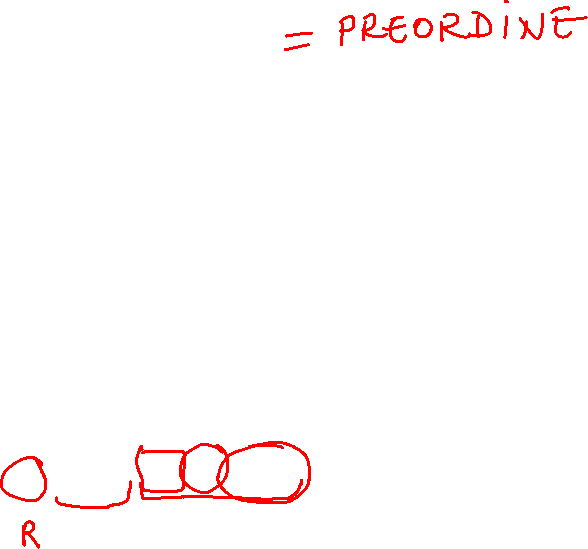 = PREORDINE
R